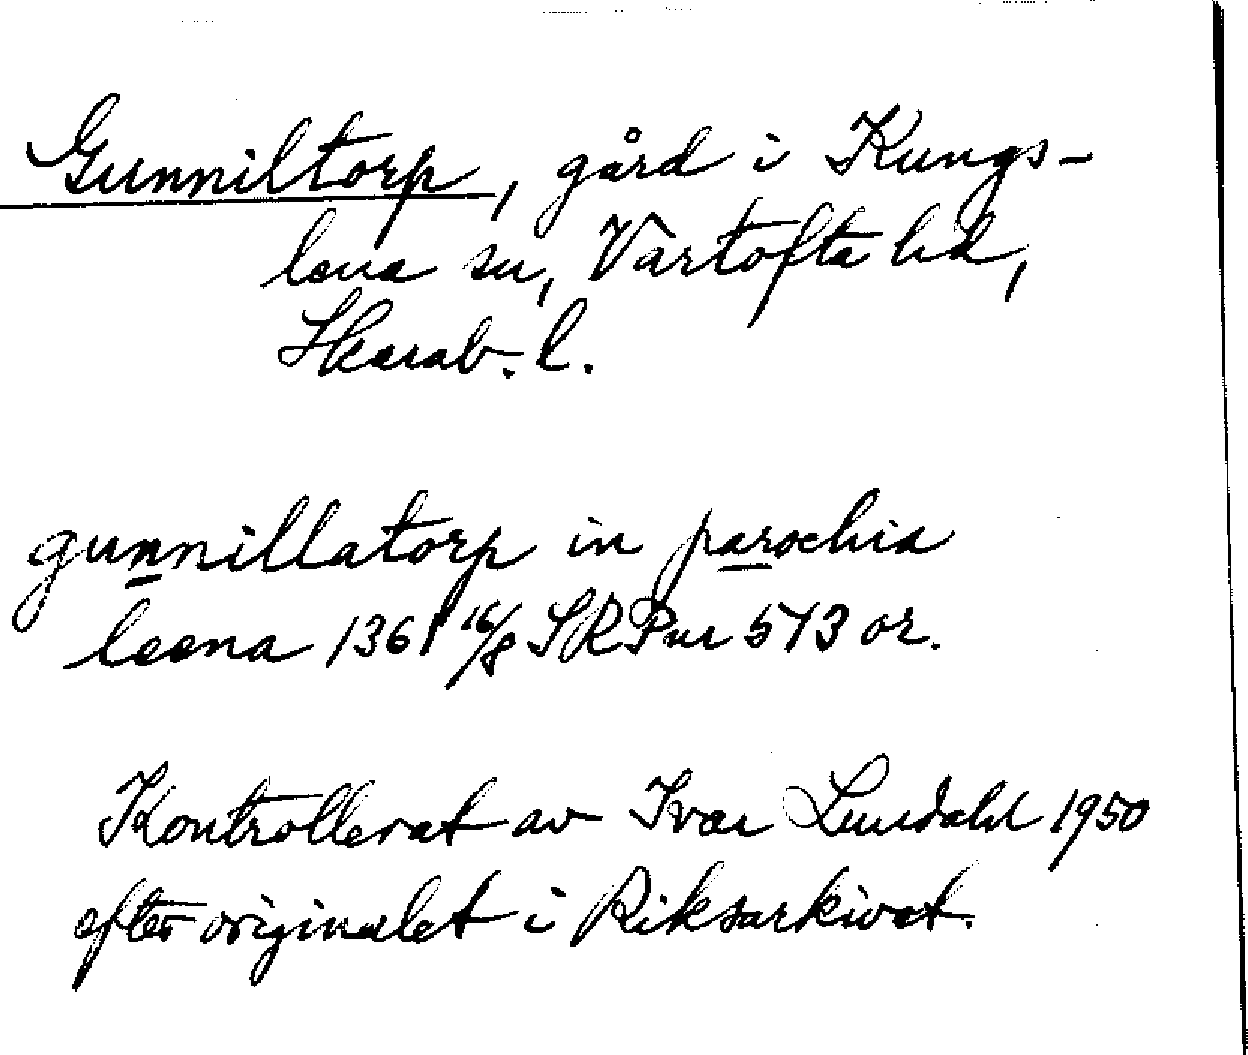 Gunniltorp, gård i Kungs-
lena sn, Vartofta hd,
Skarab. l.
gunnillatorp in parochia
leena 1361 16/8 SRPur 573 or.
Kontrollerat av Ivar Lundahl 1950
efter originalet i Riksarkivet.